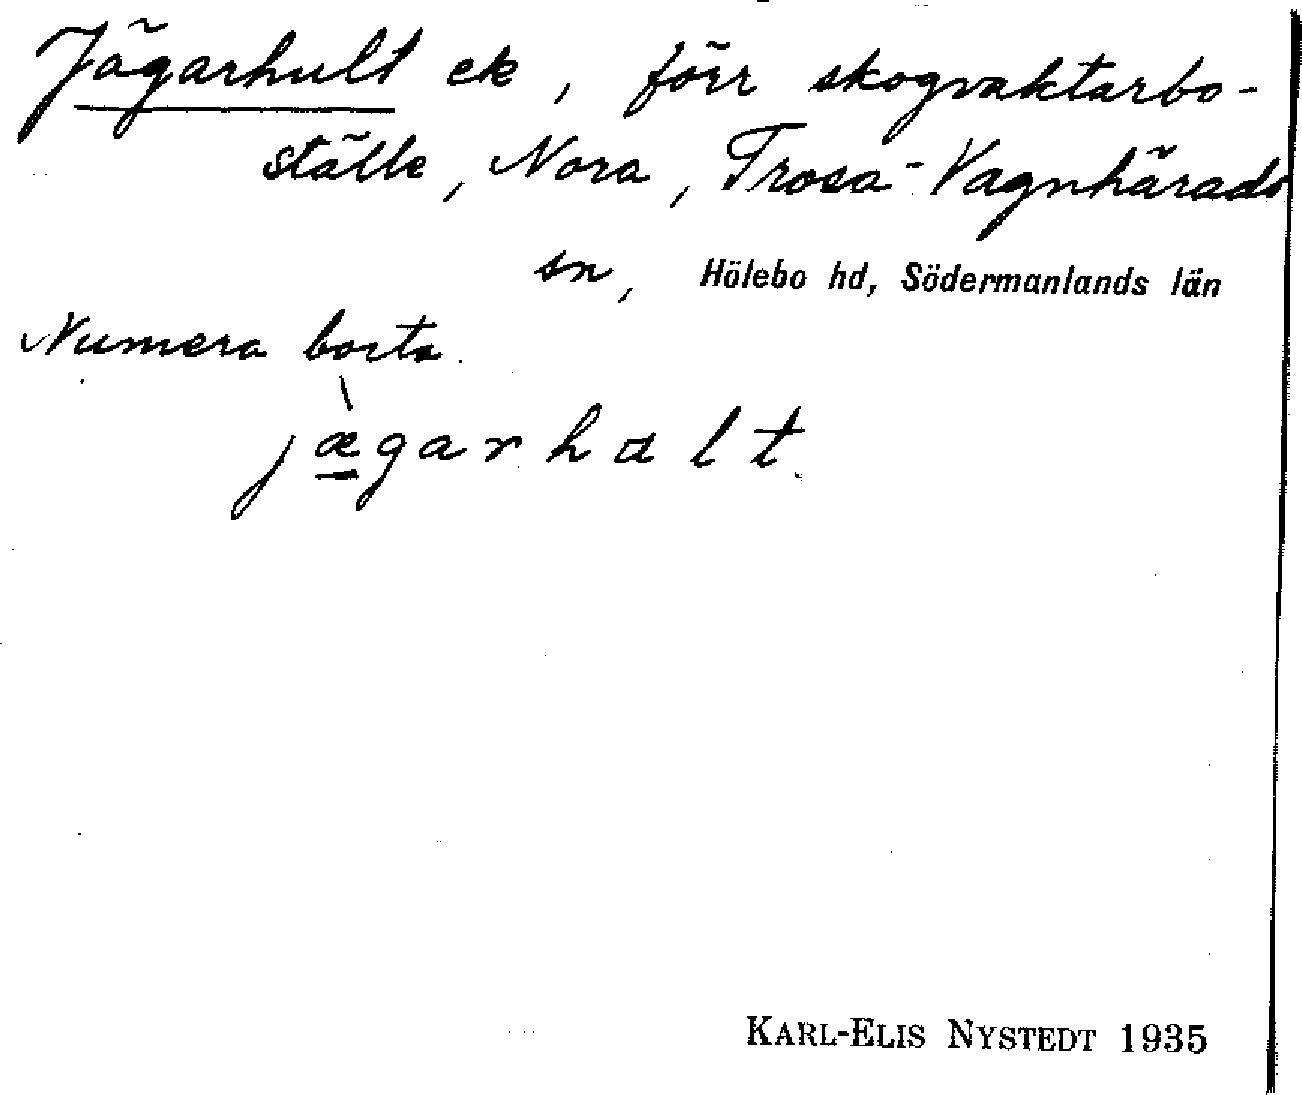 Jägarhult ek, förr skogvaktarbo-
ställe, Nora, Trosa-Vagnhärads
sn, Hölebo hd, Södermanlands län
Numera borta.
jæ̲̀garhalt.
KARL-ELIS NYSTEDT 1935